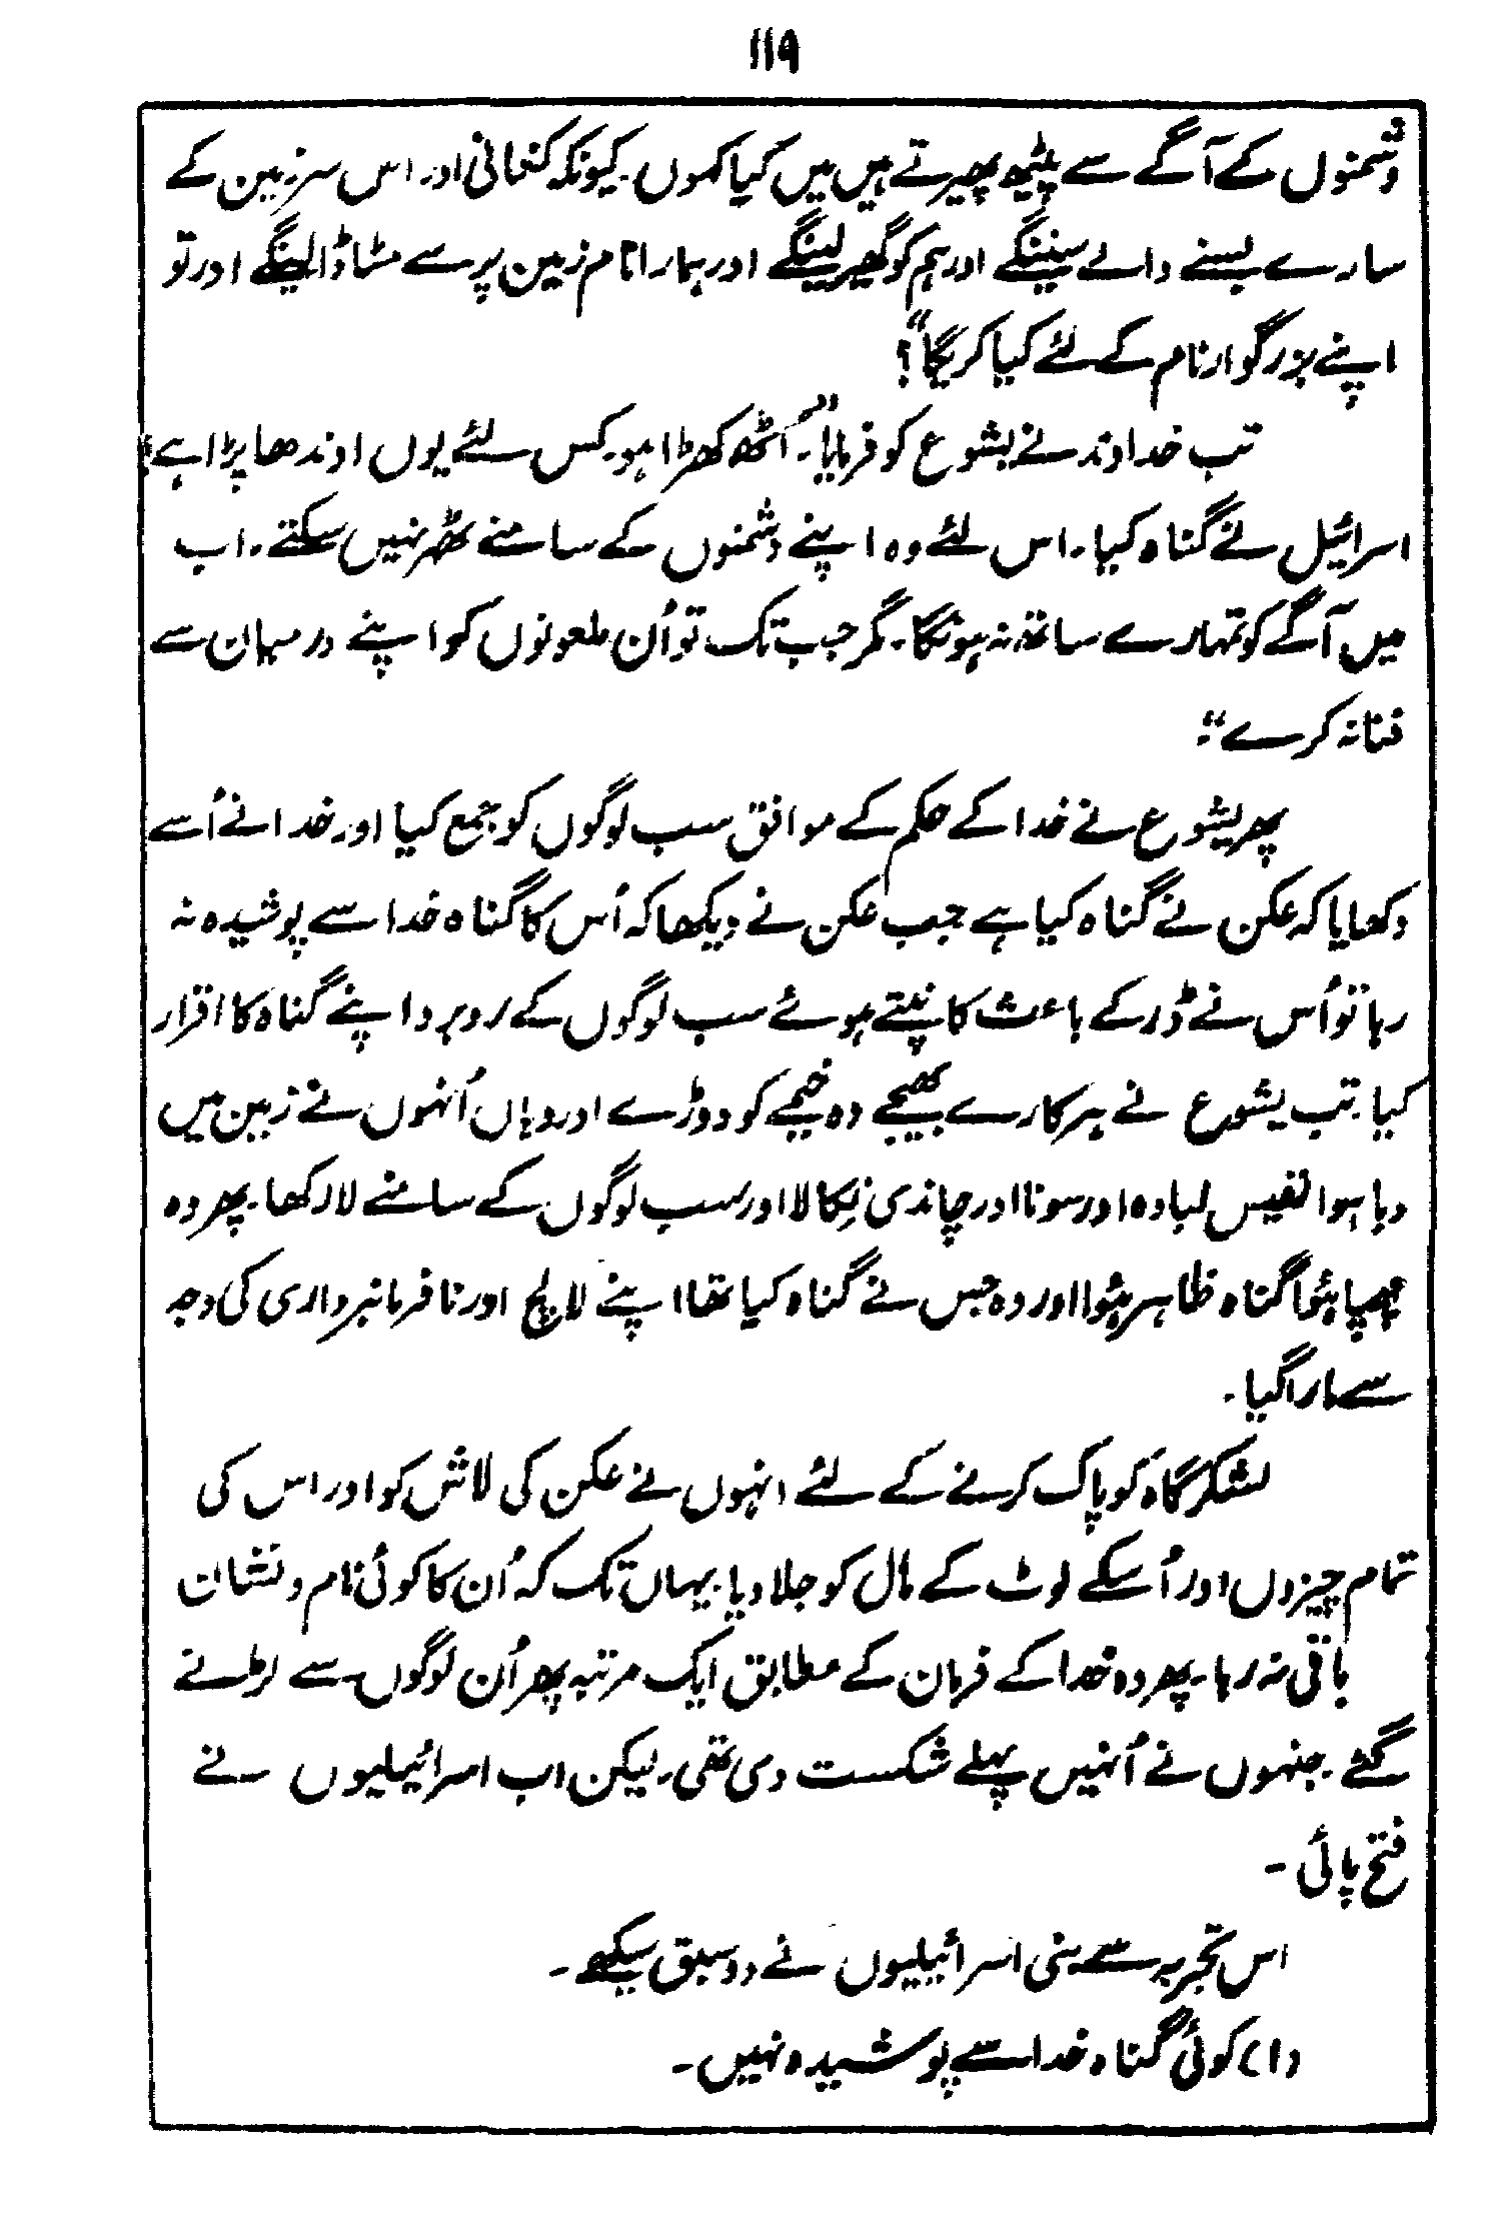 ۱۱۹
دشمنوں کے آگے سے پیٹھ پھیرتے ہیں میں کیا کہوں۔ کیونکہ کنعانی اور اس سرزمین کے
سارے بسنے والے سنینگے اور ہم کو گھیر لینگے اور ہمارا نام زمین پر سے مٹا ڈالینگے اور تو
اپنے بزرگوار نام کے لئے کیا کریگا“؟
تب خداوند نے یشوع کو فرمایا۔ ”اُٹھ کھڑا ہو۔ کس لئے یوں اوندھا پڑا ہے؟
اسرائیل نے گناہ کیا۔ اس لئے وہ اپنے دشمنوں کے سامنے ٹھہر نہیں سکتے۔ اب
میں آگے کو تمہارے ساتھ نہ ہونگا۔ مگر جب تک تو اُن ملعونوں کو اپنے درمیان سے
فنا نہ کرے“۔
پھر یشوع نے خدا کے حکم کے موافق سب لوگوں کو جمع کیا اور خدا نے اُسے
دکھایا کہ عکن نے گناہ کیا ہے جب عکن نے دیکھا کہ اُس کا گناہ خدا سے پوشیدہ نہ
رہا تو اُس نے ڈر کے باعث کانپتے ہوئے سب لوگوں کے روبرو اپنے گناہ کا اقرار
کیا۔ تب یشوع نے ہرکارے بھیجے وہ خیمے کو دوڑے اور وہاں اُنہوں نے زمین میں
دبا ہوا نفیس لبادہ اور سونا اور چاندی نکالا اور سب لوگوں کے سامنے لا رکھا۔ پھر وہ
چھپا ہؤا گناہ ظاہر ہؤا اور وہ جس نے گناہ کیا تھا اپنے لالچ اور نافرمانبرداری کی وجہ
سے مارا گیا۔
لشکر گاہ کو پاک کرنے کے لئے انہوں نے عکن کی لاش کو اور اس کی
تمام چیزوں اور اُسکے لوٹ کے مال کو جلا دیا۔ یہاں تک کہ اُن کا کوئی نام و نشان
باقی نہ رہا۔ پھر وہ خدا کے فرمان کے مطابق ایک مرتبہ پھر اُن لوگوں سے لڑنے
گئے۔ جنہوں نے اُنہیں پہلے شکست دی تھی۔ لیکن اب اسرائیلیوں نے
فتح پائی ۔
اس تجربہ سے بنی اسرائیلیوں نے دو سبق سیکھے ۔
(۱) کوئی گناہ خدا سے پوشیدہ نہیں ۔